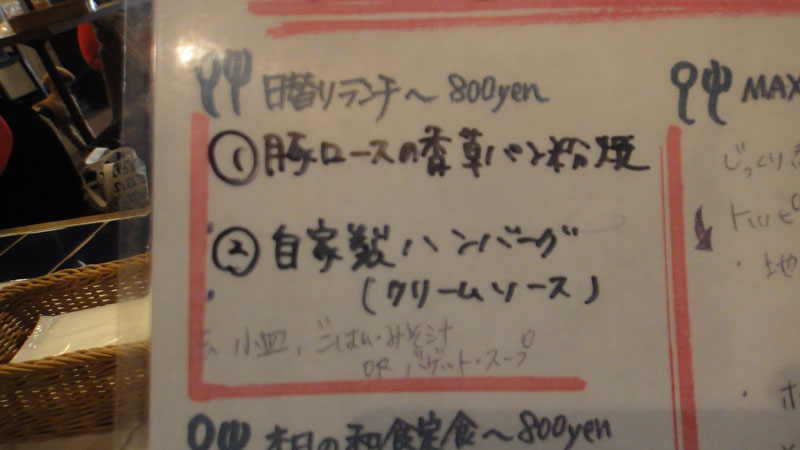 日替りランチ〜800yen
①豚ロースの香草パン粉焼
②自家製ハンバーグ
(クリームソース)
小皿、ごはん・みそ汁
OR バゲット・スープ
本日の和食定食〜800yen
MAX
じっくり
トッピ
・地
・ホ